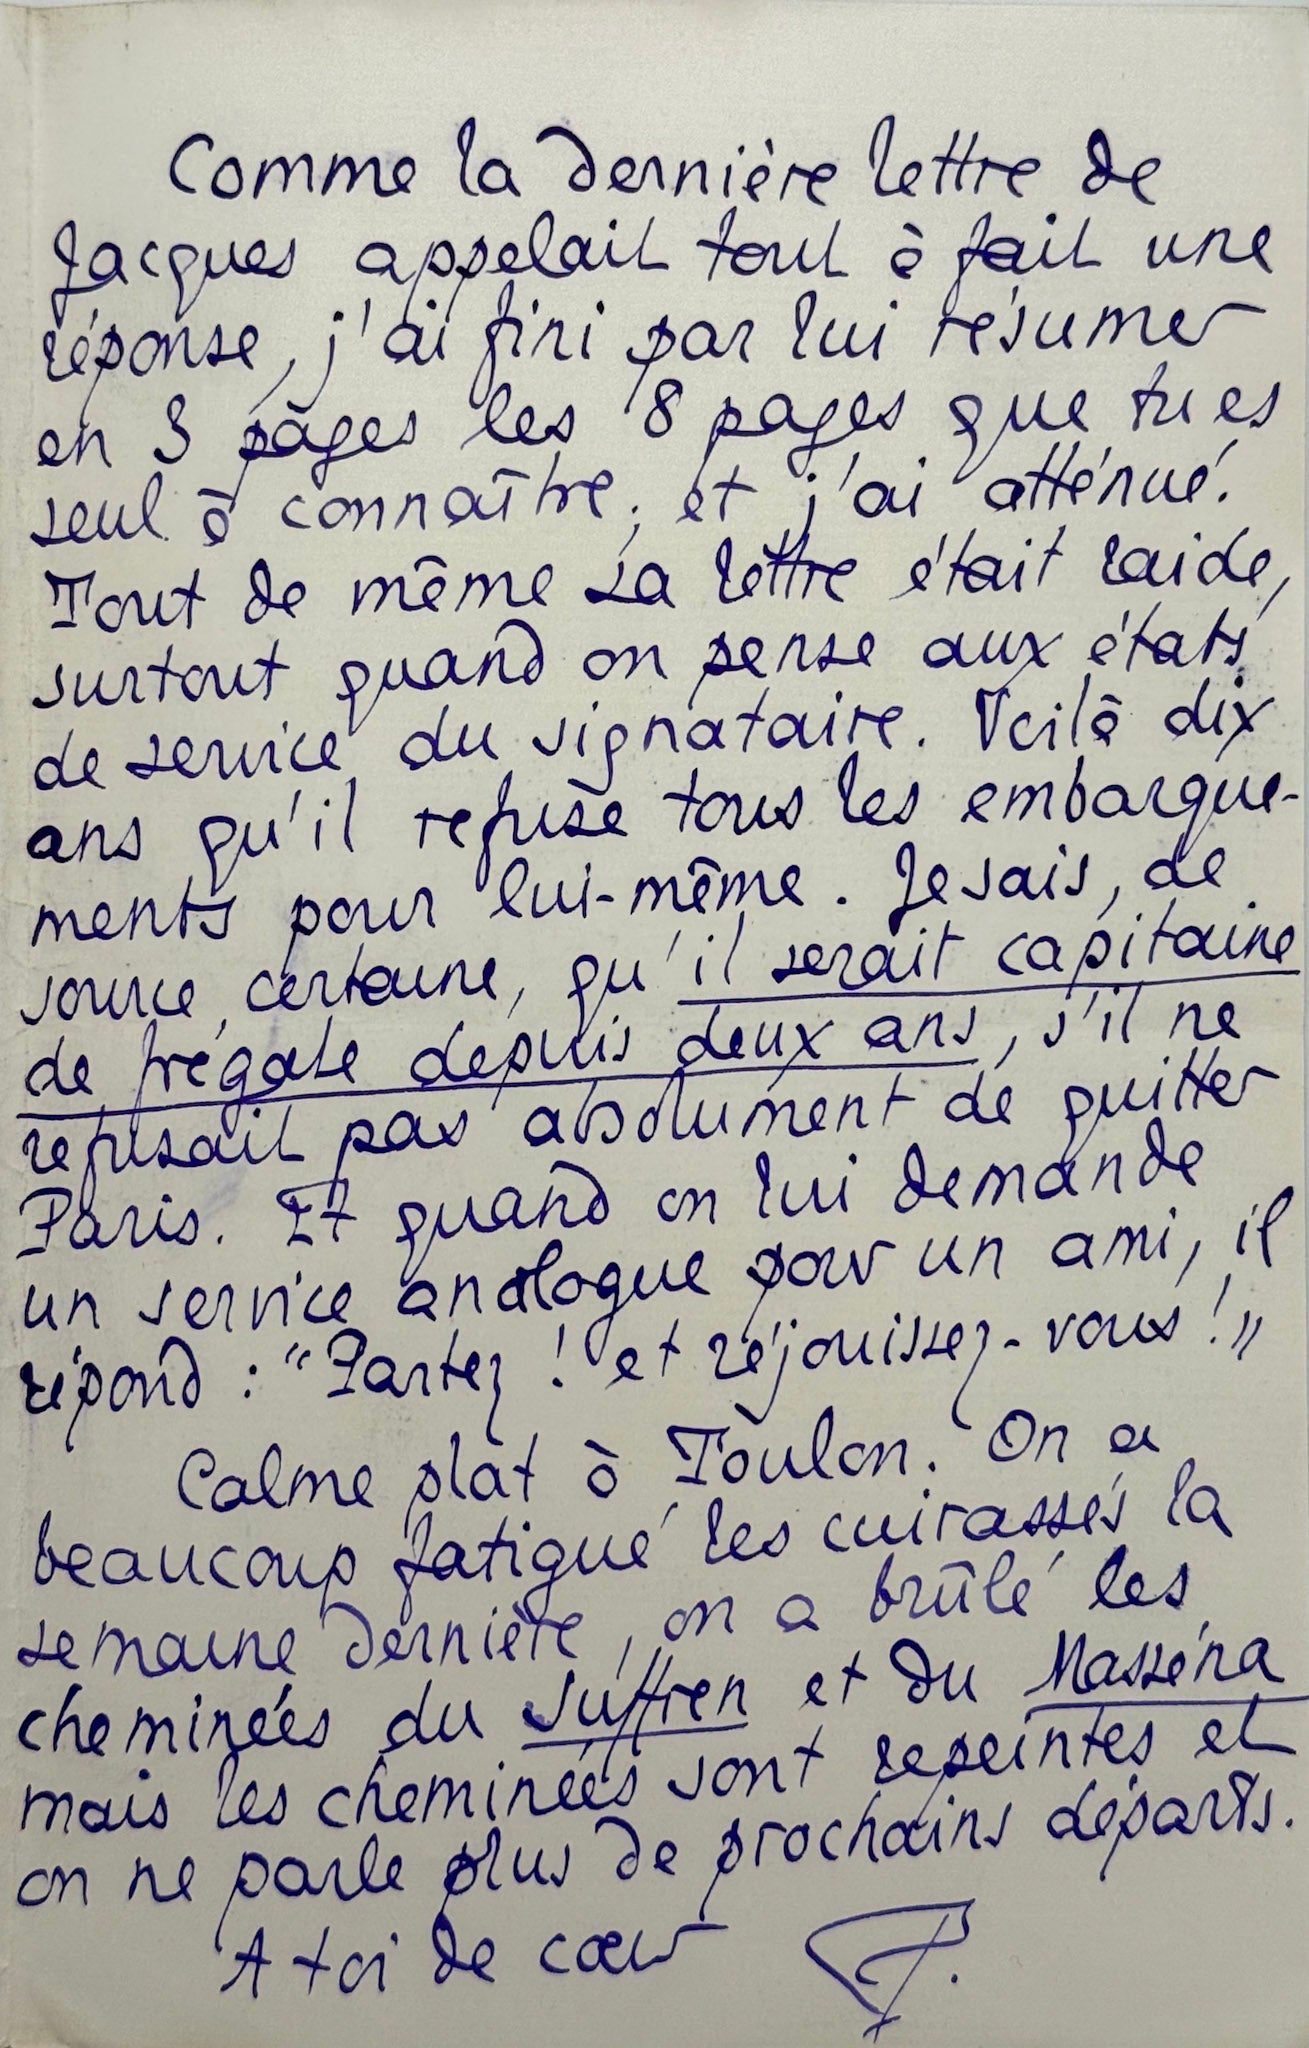 Comme la dernière lettre de
Jacques appelait tout à fait une
réponse, j'ai fini par lui résumer
en 3 pages les 8 pages que tu es
seul à connaître, et j'ai atténué.
Tout de même sa lettre était raide,
surtout quand on pense aux états
de service du signataire. Voilà dix
ans qu'il refuse tous les embarque-
ments pour lui-même. Je sais, de
source certaine, qu'il serait capitaine
de frégate depuis deux ans, s'il ne
refusait pas absolument de quitter
Paris. Et quand on lui demande
un service analogue pour un ami, il
répond : "Partez ! et réjouissez-vous !"
Calme plat à Toulon. On a
beaucoup fatigué les cuirassés la
semaine dernière, on a brûlé les
cheminées du Suffren et du Masséna
mais les cheminées sont repeintes et
on ne parle plus de prochains départs.
A toi de cœur